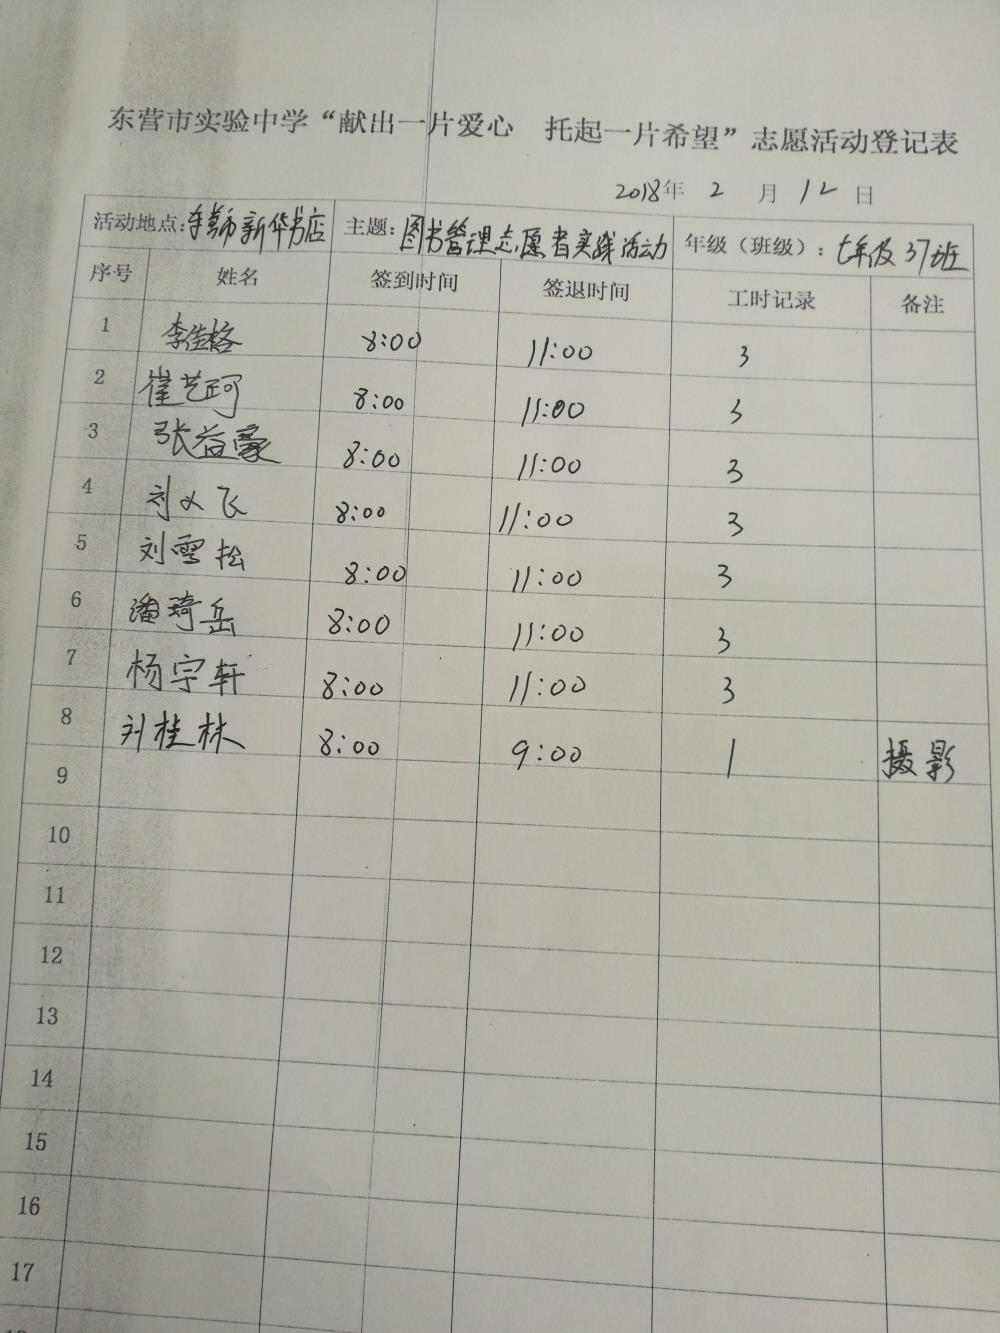 东营市实验中学“献出一片爱心 托起一片希望”志愿活动登记表
2018年 2 月 12 日
活动地点：东营市新华书店 主题：图书管理志愿者实践活动 年级（班级）：七年级37班
序号 姓名 签到时间 签退时间 工时记录 备注
1 李佳格 8:00 11:00 3
2 崔艺珂 8:00 11:00 3
3 张益豪 8:00 11:00 3
4 刘义飞 8:00 11:00 3
5 刘雪松 8:00 11:00 3
6 潘琦岳 8:00 11:00 3
7 杨宇轩 8:00 11:00 3
8 刘桂林 8:00 9:00 1 摄影
9
10
11
12
13
14
15
16
17